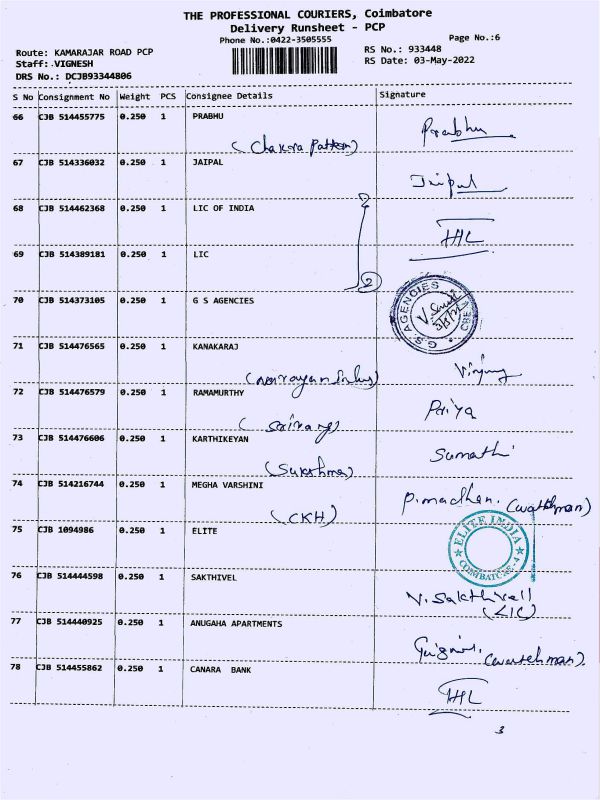 THE PROFESSIONAL COURIERS, Coimbatore
Delivery Runsheet - PCP
Phone No.:0422-3505555
Page No.:6
Route: KAMARAJAR ROAD PCP
RS No.: 933448
Staff: VIGNESH
RS Date: 03-May-2022
DRS No.: DCJB93344806
S No Consignment No Weight PCS Consignee Details Signature
66 CJB 514455775 0.250 1 PRABHU Prabhu
67 CJB 514336032 0.250 1 JAIPAL Jaipal
68 CJB 514462368 0.250 1 LIC OF INDIA
69 CJB 514389181 0.250 1 LIC
2
70 CJB 514373105 0.250 1 G S AGENCIES G.S. AGENCIES CBE
71 CJB 514476565 0.250 1 KANAKARAJ
72 CJB 514476579 0.250 1 RAMAMURTHY Priya
73 CJB 514476606 0.250 1 KARTHIKEYAN Sumathi
(Sukshma)
74 CJB 514216744 0.250 1 MEGHA VARSHINI P.madhan. (watchman)
(CKH)
75 CJB 1094986 0.250 1 ELITE ELITE INDIA COIMBATORE-4
76 CJB 514444598 0.250 1 SAKTHIVEL V. Sakthivell
(LIC)
77 CJB 514440925 0.250 1 ANUGAHA APARTMENTS
78 CJB 514455862 0.250 1 CANARA BANK
3